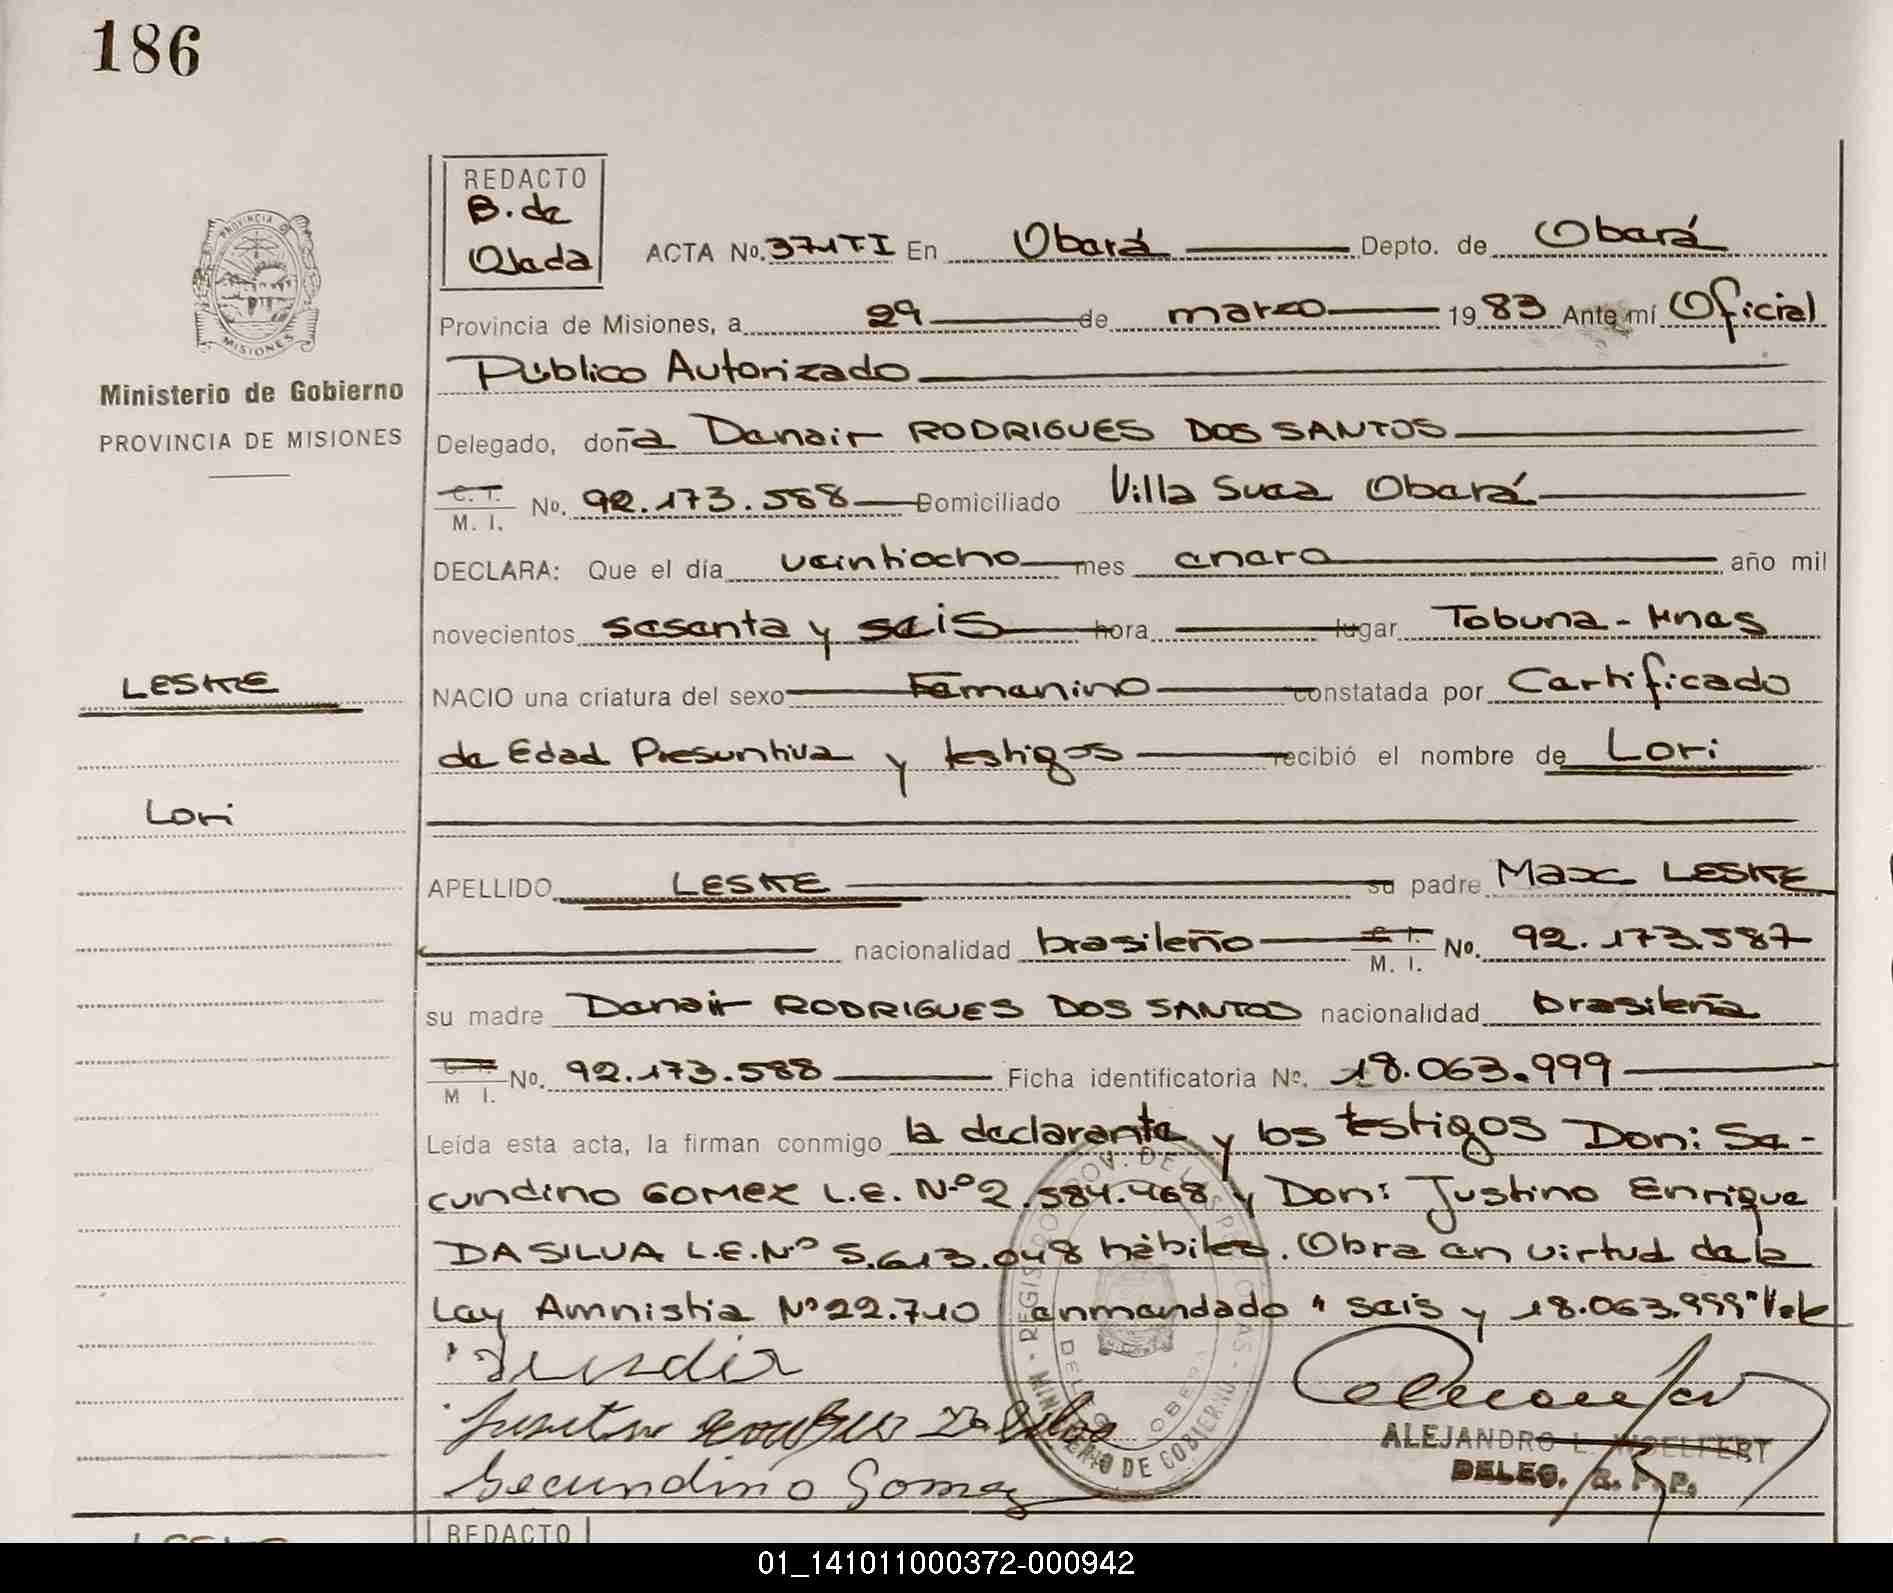 186
REDACTO
B. de
Ojeda
ACTA No. 371TI En Oberá Depto. de Oberá
Provincia de Misiones, a 29 de marzo 1983 Ante mí Oficial
Público Autorizado
Ministerio de Gobierno
PROVINCIA DE MISIONES
Delegado, doña Danair RODRIGUES DOS SANTOS
C. I.
M. I. No. 92.173.588 Domiciliado Villa Suea Oberá
DECLARA: Que el día veintiocho mes enero año mil
novecientos sesenta y seis hora lugar Tobuna - Mnes
LESKE
NACIO una criatura del sexo Femenino constatada por Certificado
de Edad Presuntiva y testigos recibió el nombre de Lori
Lori
APELLIDO LESKE su padre Max LESKE
nacionalidad brasileño C. I. M. I. No. 92.173.587
su madre Danair RODRIGUES DOS SANTOS nacionalidad brasileña
C. I. M I. No. 92.173.588 Ficha identificatoria No. 18.063.999
Leída esta acta, la firman conmigo la declarante y los testigos Don: Se-
cundino GOMEZ L.E. Nº 2.584.468 y Don: Justino Enrique
DA SILVA L.E. Nº 5.613.048 hábiles. Obra en virtud de la
Ley Amnistia Nº 22.740 enmendado "seis y 18.063.999" Vale
Secundino Gomez
ALEJANDRO L. WOELFERT
DELEG. R. P. P.
REGISTRO PROV. DE LAS PERSONAS
MINISTERIO DE GOBIERNO
OBERA
PROVINCIA DE
MISIONES
LESKE
REDACTO
01_141011000372-000942